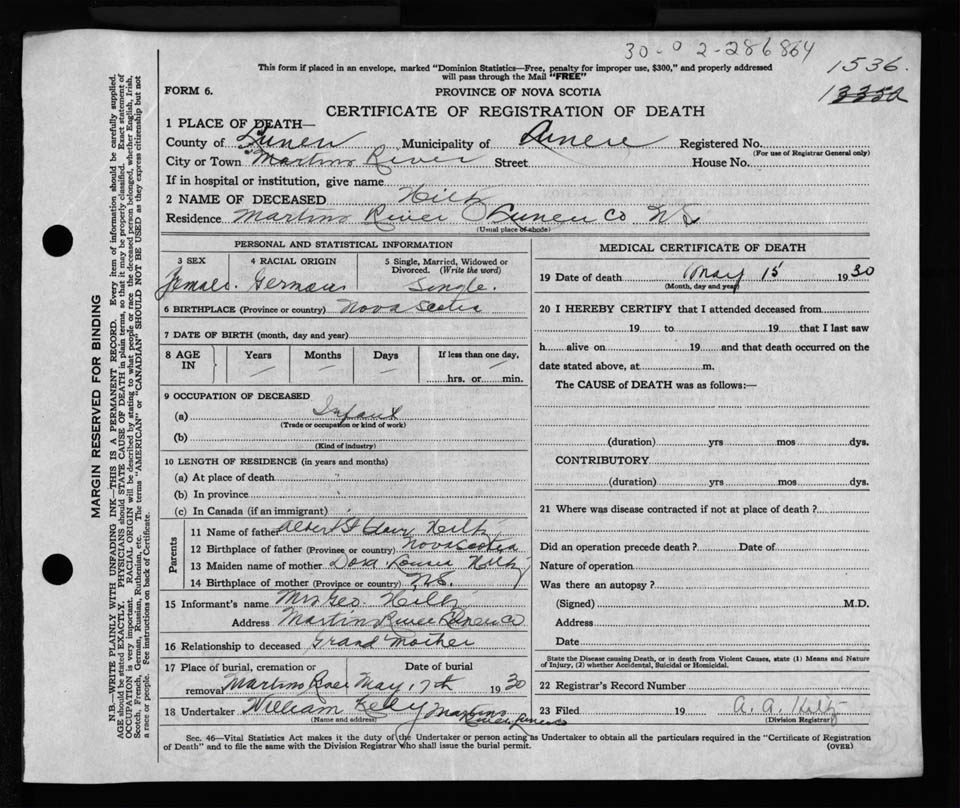 30-0 2-286864
1536.
This form if placed in an envelope, marked "Dominion Statistics—Free, penalty for improper use, $300," and properly addressed
will pass through the Mail "FREE"
FORM 6.
PROVINCE OF NOVA SCOTIA
CERTIFICATE OF REGISTRATION OF DEATH
1 PLACE OF DEATH—
County of Lunen Municipality of Registered No.
(For use of Registrar General only)
City or Town Martins River Street House No.
If in hospital or institution, give name
2 NAME OF DECEASED Hilty
Residence Martins River Lunen Co NS
(Usual place of abode)
PERSONAL AND STATISTICAL INFORMATION
3 SEX
4 RACIAL ORIGIN
5 Single, Married, Widowed or
Divorced. (Write the word)
Female. German Single.
6 BIRTHPLACE (Province or country) Nova Scotia
7 DATE OF BIRTH (month, day and year)
8 AGE
IN
Years Months Days If less than one day,
— — — —
hrs. or min.
9 OCCUPATION OF DECEASED
(a) Infant
(Trade or occupation or kind of work)
(b)
(Kind of industry)
10 LENGTH OF RESIDENCE (in years and months)
(a) At place of death
(b) In province
(c) In Canada (if an immigrant)
Parents
11 Name of father Albert St Clair Hilty
12 Birthplace of father (Province or country) Nova Scotia
13 Maiden name of mother Dora Louisa Hilty
14 Birthplace of mother (Province or country) N.S.
15 Informant's name Mrs Geo. Hilty
Address Martins River Lunen Co
16 Relationship to deceased Grand Mother
17 Place of burial, cremation or Date of burial
removal Martins River May 17th 1930
18 Undertaker William Kelly Martins
River Lunen Co
(Name and address)
MEDICAL CERTIFICATE OF DEATH
19 Date of death May 15 1930
(Month, day and year)
20 I HEREBY CERTIFY that I attended deceased from
19 to 19 that I last saw
h alive on 19 and that death occurred on the
date stated above, at m.
The CAUSE of DEATH was as follows:—
(duration) yrs mos dys.
CONTRIBUTORY
(duration) yrs mos dys.
21 Where was disease contracted if not at place of death?
Did an operation precede death? Date of
Nature of operation
Was there an autopsy?
(Signed) M.D.
Address
Date
State the Disease causing Death, or in death from Violent Causes, state (1) Means and Nature
of Injury, (2) whether Accidental, Suicidal or Homicidal.
22 Registrar's Record Number
23 Filed 19 A. A. Hilty
(Division Registrar)
Sec. 46—Vital Statistics Act makes it the duty of the Undertaker or person acting as Undertaker to obtain all the particulars required in the "Certificate of Registration
of Death" and to file the same with the Division Registrar who shall issue the burial permit.
(OVER)
MARGIN RESERVED FOR BINDING
N.B.—WRITE PLAINLY WITH UNFADING INK—THIS IS A PERMANENT RECORD. Every item of information should be carefully supplied.
AGE should be stated EXACTLY. PHYSICIANS should STATE CAUSE OF DEATH in plain terms, so that it may be properly classified. Exact statement of
OCCUPATION is very important. RACIAL ORIGIN will be described by stating to what people or race the deceased person belonged, whether English, Irish,
Scotch, French, German, Russian, Ruthenian, etc. The terms "AMERICAN" or "CANADIAN" SHOULD NOT BE USED as they express citizenship but not
a race or people. See instructions on back of Certificate.